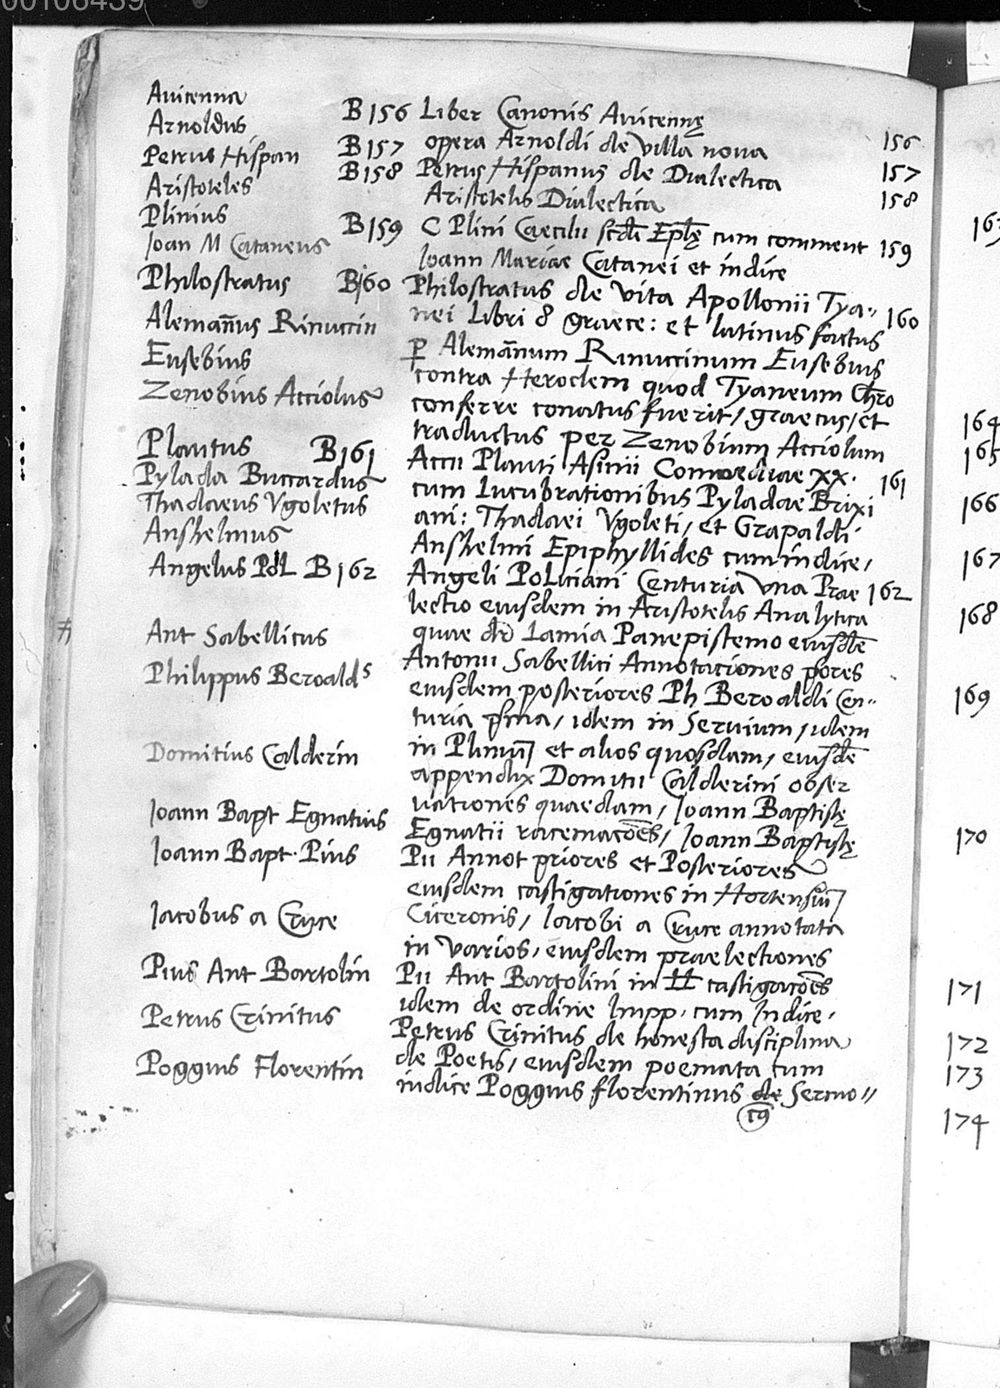 00106439
Auicenna
B156 Liber Canonis Auicennę
Arnoldus
156
B157 opera Arnoldi de Villa noua
Petrus Hispan
157
B158 Petrus Hispanus de Dialectica
Aristoteles
158
Aristotelis Dialectica
Plinius
B159 C Plini Caecilii scđi Eplę cum comment 159
Ioan M Cataneus
Ioann Mariae Catanei et indice
Philostratus B160 Philostratus de vita Apollonii Tya-
160
Alemañus Rinuccin
nei Libri 8 graece: et latinus factus
Eusebius
ꝑ Alemañum Rinuccinum Eusebius
contra Heroclem quod Tyaneum Chro
Zenobius Acciolus
conferre conatus fuerit, graecus, et
traductus per Zenobium Acciolum
Plautus B161
Accii Plauti Asinii Comoediae XX.
161
Pylada Buccardus
cum Lucubrationibus Pyladae Brixi
Thadaeus Vgoletus
ani: Thadaei Vgoleti, et Grapaldi
Anshelmus
Anshelmi Epiphyllides cum indice,
Angelus Pol B162
Angeli Policiani Centuria Vna Prae 162
lectio eiusdem in Aristotelis Analytica
Ant Sabellicus
quae dr Lamia Panepistemo eiusdē
Antonii Sabellici Annotationes pores
Philippus Beroalds
eiusdem posteriores Ph Beroaldi Cen-
turia pma, idem in Seruium, idem
Domitius Calderin
in Plinium et alios quosdam, eiusdē
appendix Domitii Calderini obser
uationes quaedam, Ioann Baptistę
Ioann Bapt Egnatius
Egnatii racemacōes, Ioann Baptistę
Ioann Bapt. Pius
Pii Annot priores et Posteriores
eiusdem castigationes in Hortensium
Iacobus a Cruce
Ciceronis, Iacobi a Cruce annotata
in varios, eiusdem praelectiones
Pius Ant Bartolin
Pii Ant Bartolini in LL castigacōes
idem de ordine Impp. cum Indice.
Petrus Crinitus
Petrus Crinitus de honesta disciplina
de Poetis, eiusdem poemata cum
Poggius Florentin
indice Poggius florentinus de Sermo-
163
164
165
166
167
168
169
170
171
172
173
174